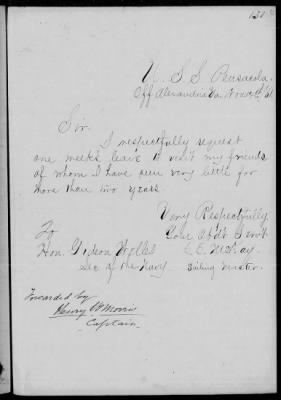 U. S. S. Pensacola.
Off Alexandria Va. Nov
Sir.
I respectfully request
one week's leave to visit my friends
of whom I have seen very little for
more than two years.
Very Respectfully
Your Obdt Servt
To
Hon. Gideon Welles
E. E. McKay
Sec of the Navy
Sailing Master.
Forwarded by
Henry W Morris
Captain.